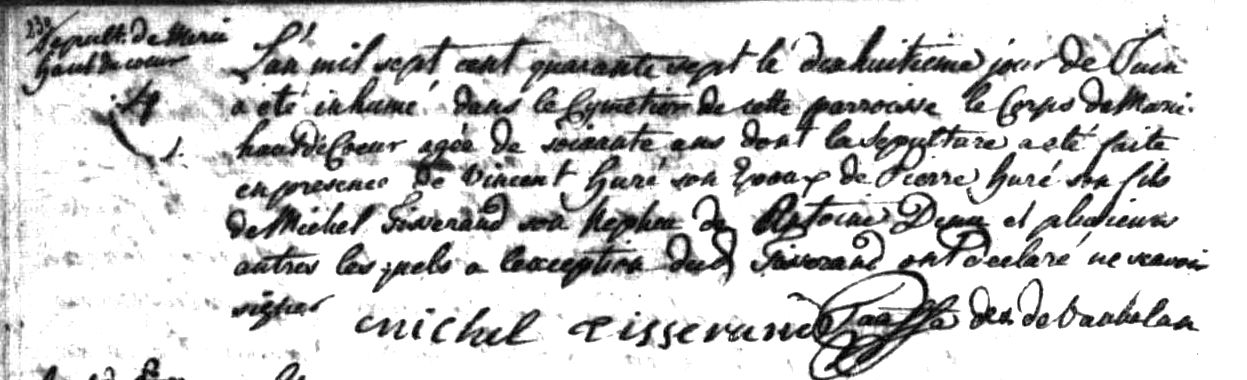 Sepult. de Marie
haut de coeur
L'an mil sept cent quarante sept le dixhuitieme jour de Juin
a été inhumé dans le Cymetiere de cette parroisse le Corps de Marie
haut de Coeur agée de soixante ans dont la sepulture a eté faite
en presence de Vincent huré son Epoux de Pierre huré son fils
de Michel Tisserand son Nepheu de Antoine et plusieurs
autres lesquels a l'exception dud Tisserand ont declaré ne scavoir
signer
Michel Tisserand